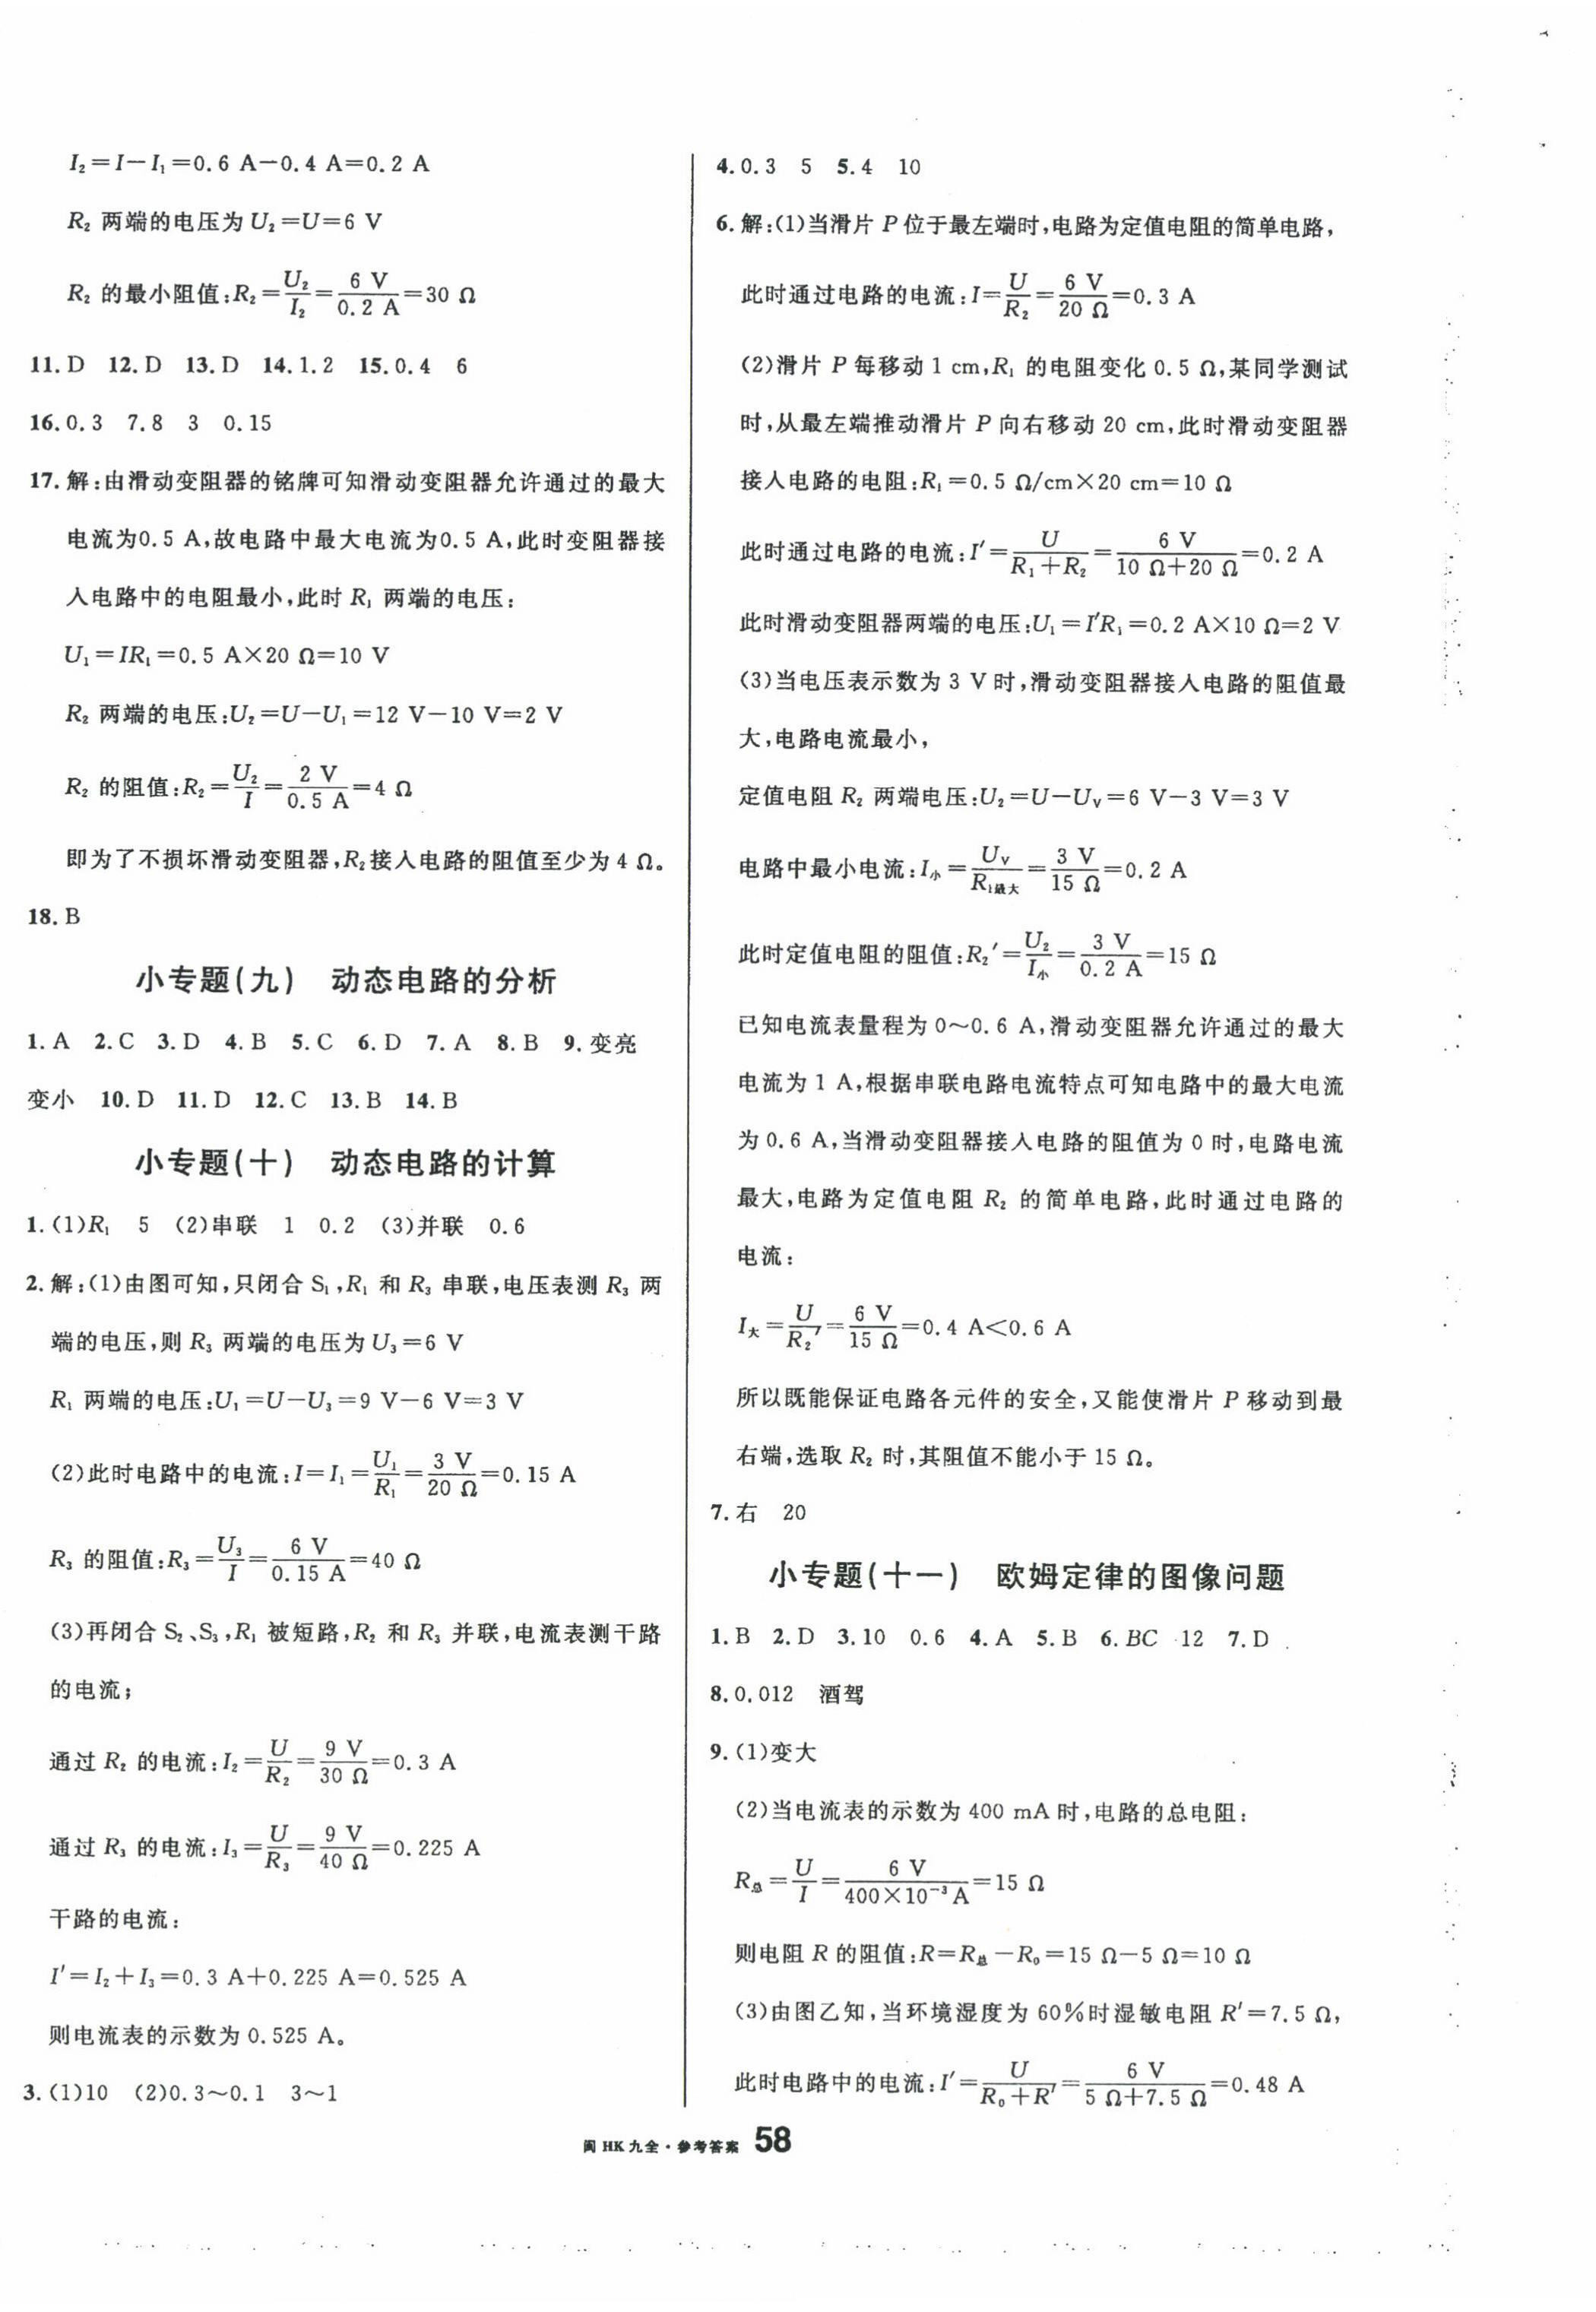 I₂=I-I₁=0.6 A-0.4 A=0.2 A
R₂ 两端的电压为 U₂=U=6 V
R₂ 的最小阻值:R₂=U₂/I₂=6 V/0.2 A=30 Ω
11.D 12.D 13.D 14.1.2 15.0.4 6
16.0.3 7.8 3 0.15
17.解:由滑动变阻器的铭牌可知滑动变阻器允许通过的最大
电流为0.5 A,故电路中最大电流为0.5 A,此时变阻器接
入电路中的电阻最小,此时 R₁ 两端的电压:
U₁=IR₁=0.5 A×20 Ω=10 V
R₂ 两端的电压:U₂=U-U₁=12 V-10 V=2 V
R₂ 的阻值:R₂=U₂/I=2 V/0.5 A=4 Ω
即为了不损坏滑动变阻器,R₂接入电路的阻值至少为 4 Ω。
18.B
小专题(九) 动态电路的分析
1.A 2.C 3.D 4.B 5.C 6.D 7.A 8.B 9.变亮
变小 10.D 11.D 12.C 13.B 14.B
小专题(十) 动态电路的计算
1.(1)R₁ 5 (2)串联 1 0.2 (3)并联 0.6
2.解:(1)由图可知,只闭合 S₁,R₁ 和 R₃ 串联,电压表测 R₃ 两
端的电压,则 R₃ 两端的电压为 U₃=6 V
R₁ 两端的电压:U₁=U-U₃=9 V-6 V=3 V
(2)此时电路中的电流:I=I₁=U₁/R₁=3 V/20 Ω=0.15 A
R₃ 的阻值:R₃=U₃/I=6 V/0.15 A=40 Ω
(3)再闭合 S₂、S₃,R₁ 被短路,R₂ 和 R₃ 并联,电流表测干路
的电流;
通过 R₂ 的电流:I₂=U/R₂=9 V/30 Ω=0.3 A
通过 R₃ 的电流:I₃=U/R₃=9 V/40 Ω=0.225 A
干路的电流:
I′=I₂+I₃=0.3 A+0.225 A=0.525 A
则电流表的示数为 0.525 A。
3.(1)10 (2)0.3~0.1 3~1
4.0.3 5 5.4 10
6.解:(1)当滑片 P 位于最左端时,电路为定值电阻的简单电路,
此时通过电路的电流:I=U/R₂=6 V/20 Ω=0.3 A
(2)滑片 P 每移动 1 cm,R₁ 的电阻变化 0.5 Ω,某同学测试
时,从最左端推动滑片 P 向右移动 20 cm,此时滑动变阻器
接入电路的电阻:R₁=0.5 Ω/cm×20 cm=10 Ω
此时通过电路的电流:I′=U/(R₁+R₂)=6 V/(10 Ω+20 Ω)=0.2 A
此时滑动变阻器两端的电压:U₁=I′R₁=0.2 A×10 Ω=2 V
(3)当电压表示数为 3 V 时,滑动变阻器接入电路的阻值最
大,电路电流最小,
定值电阻 R₂ 两端电压:U₂=U-Uᵥ=6 V-3 V=3 V
电路中最小电流:I小=Uᵥ/R₁最大=3 V/15 Ω=0.2 A
此时定值电阻的阻值:R₂′=U₂/I小=3 V/0.2 A=15 Ω
已知电流表量程为 0~0.6 A,滑动变阻器允许通过的最大
电流为 1 A,根据串联电路电流特点可知电路中的最大电流
为 0.6 A,当滑动变阻器接入电路的阻值为 0 时,电路电流
最大,电路为定值电阻 R₂ 的简单电路,此时通过电路的
电流:
I大=U/R₂′=6 V/15 Ω=0.4 A<0.6 A
所以既能保证电路各元件的安全,又能使滑片 P 移动到最
右端,选取 R₂ 时,其阻值不能小于 15 Ω。
7.右 20
小专题(十一) 欧姆定律的图像问题
1.B 2.D 3.10 0.6 4.A 5.B 6.BC 12 7.D
8.0.012 酒驾
9.(1)变大
(2)当电流表的示数为 400 mA 时,电路的总电阻:
R总=U/I=6 V/(400×10⁻³ A)=15 Ω
则电阻 R 的阻值:R=R总-R₀=15 Ω-5 Ω=10 Ω
(3)由图乙知,当环境湿度为 60%时湿敏电阻 R′=7.5 Ω,
此时电路中的电流:I′=U/(R₀+R′)=6 V/(5 Ω+7.5 Ω)=0.48 A
闽 HK 九全·参考答案 58